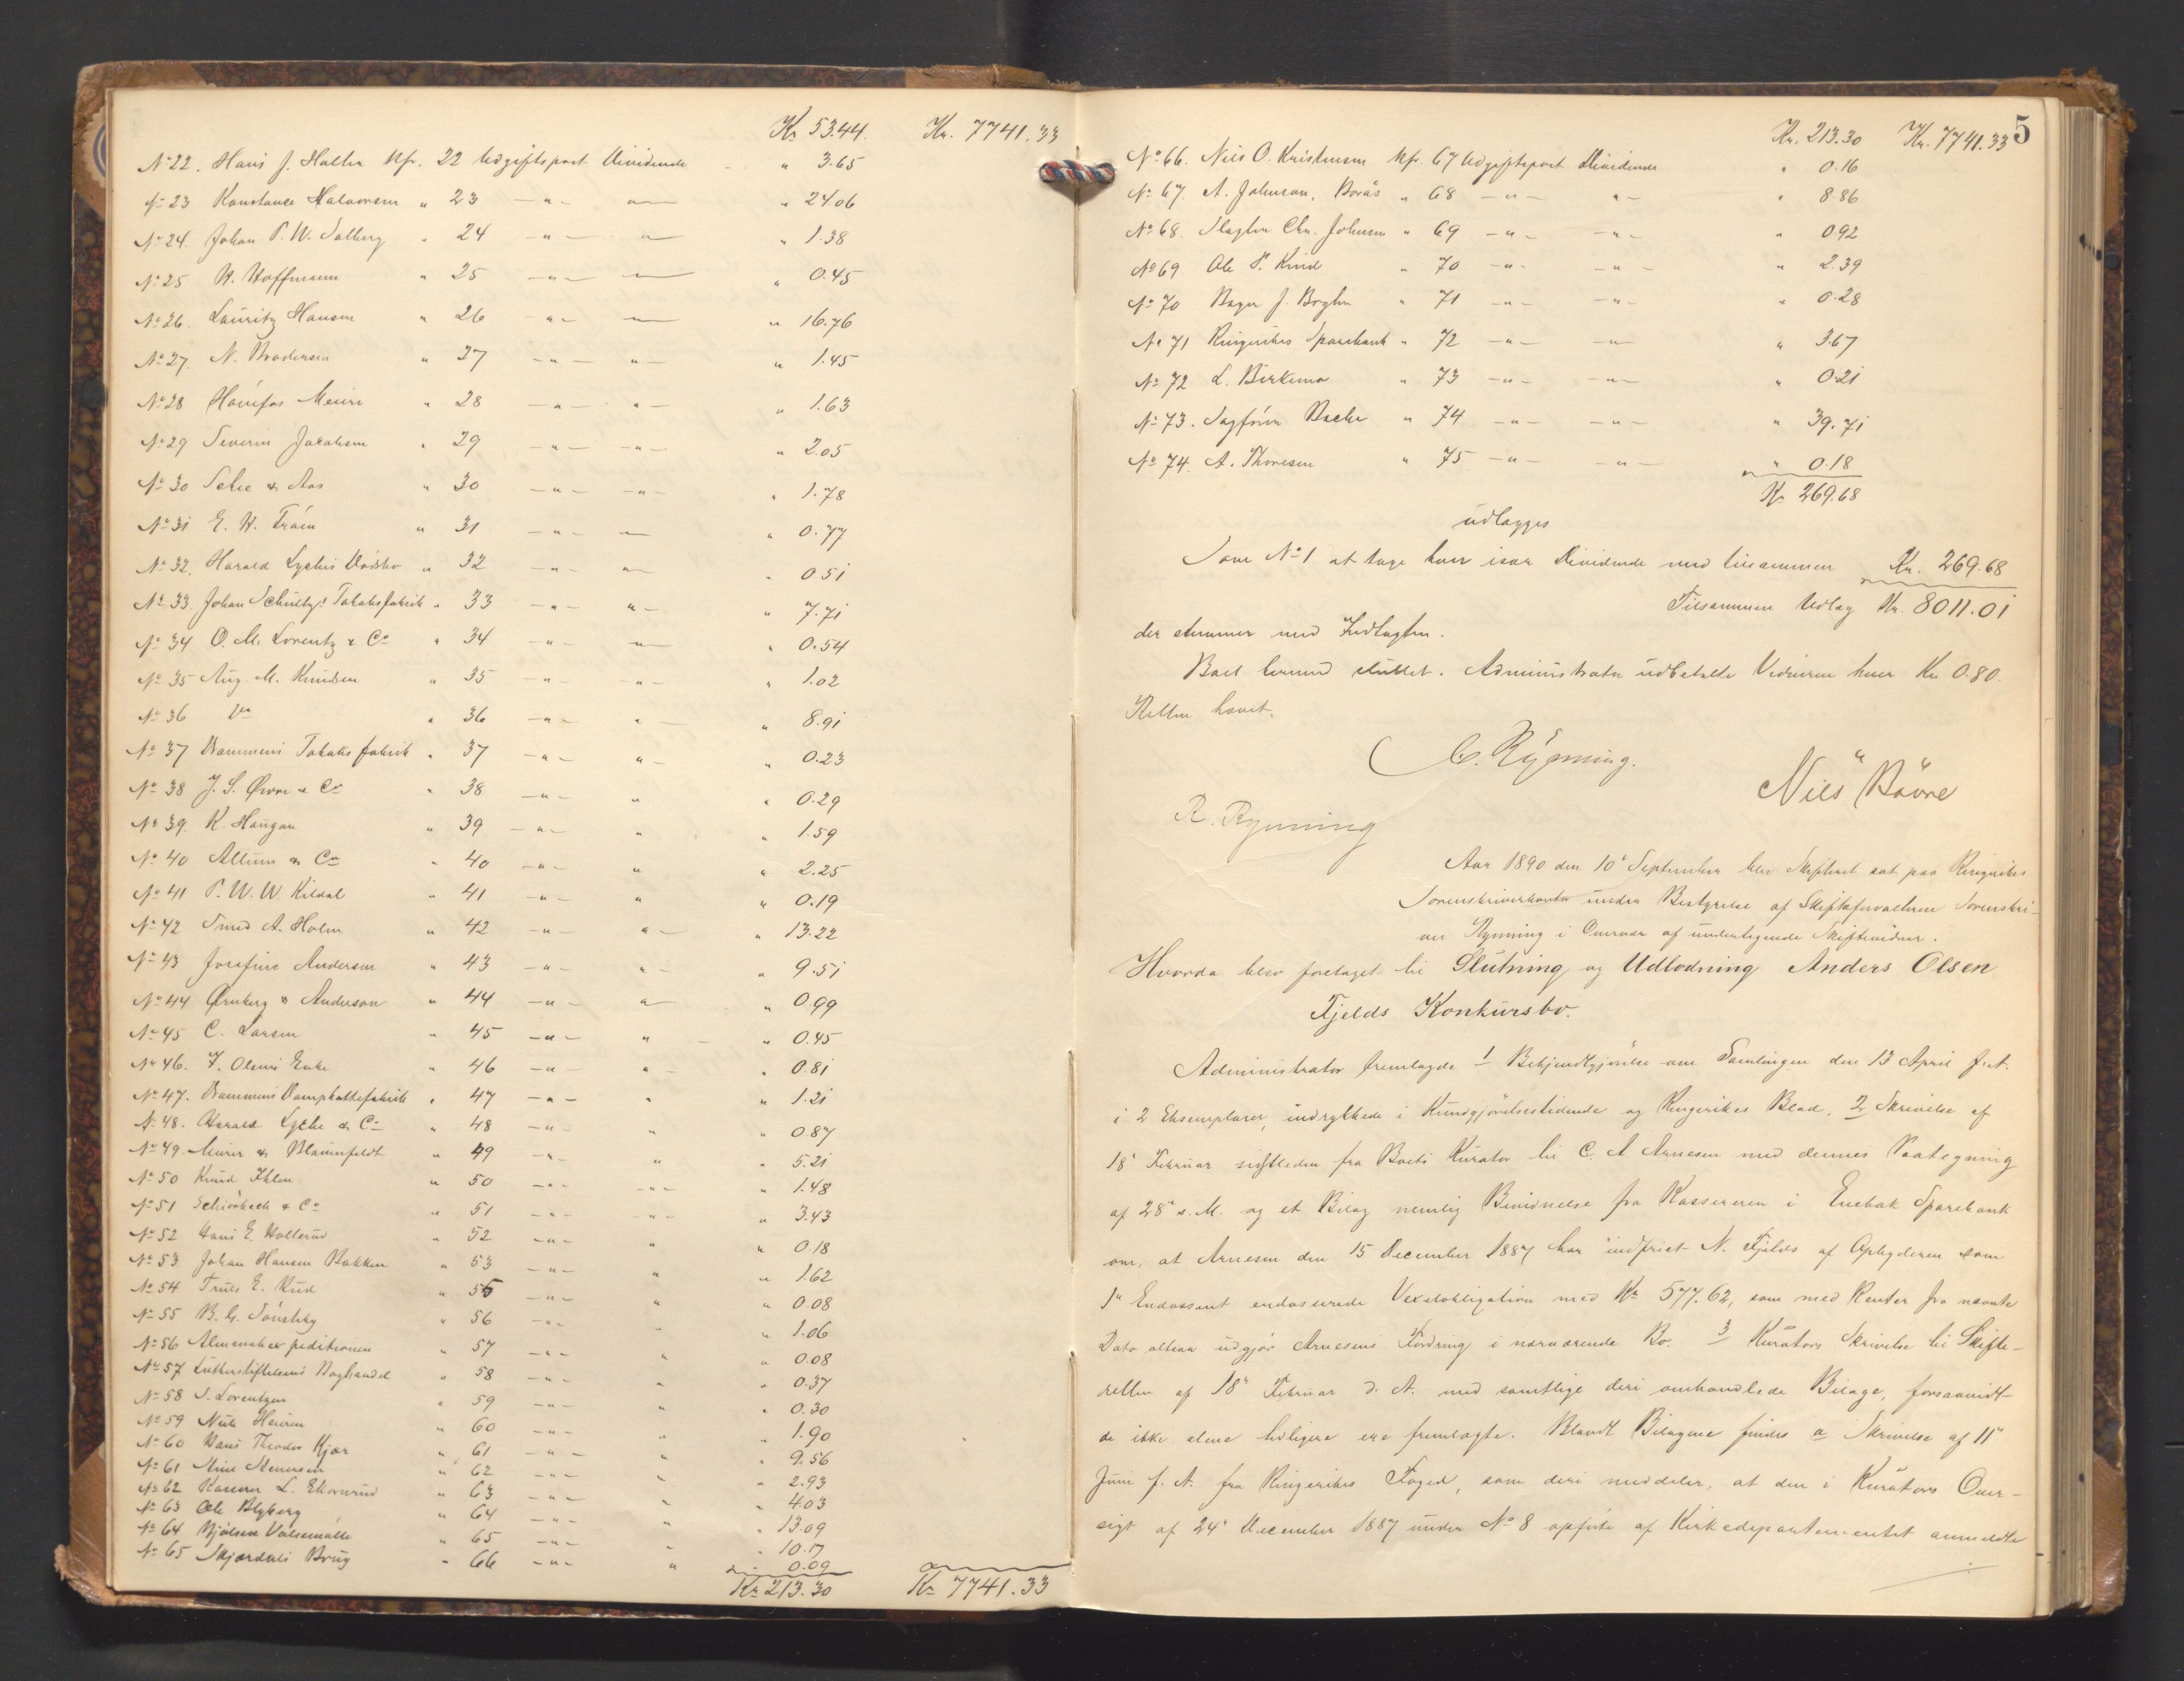 Kr 53.44. Kr. 7741.33
No 22. Hans J. Halten Nfr. 22 Udgiftspost Dividende " 3.65
No 23 Konstance Halvorsen " 23 -"- " 24.06
No 24. Johan P. W. Salberg " 24 -"- " 1.38
No 25 H. Hoffmann " 25 -"- " 0.45
No 26. Lauritz Hansen " 26 -"- " 16.76
No 27. N. Brodersen " 27 -"- "- " 1.45
No 28 Hønefos Meieri " 28 -"- "- " 1.63
No 29 Severin Jakobsen " 29 -"- -"- " 2.05
No 30 Schee & Aas " 30 -"- -"- " 1.78
No 31 E. H. Traen " 31 -"- " 0.77
No 32. Harald Lyches " 32 -"- " 0.51
No 33. Johan Schultz's Tobaksfabrik " 33 -"- "- " 7.71
No 34 O. M. Lorentz & Co " 34 -"- "- " 0.54
No 35 Aug. M. Knudsen " 35 -"- -"- " 1.02
No 36 Do " 36 -"- "- " 8.91
No 37 Drammens Tobaks fabrik " 37 -"- "- " 0.23
No 38 J. S. & Co " 38 -"- " " 0.29
No 39. K. Haugan " 39 -"- " " 1.59
No 40 Allum & Co " 40 -"- " " 2.25
No 41 P. W. W. Kildal " 41 -"- " " 0.19
No 42 Smed A. Holm " 42 -"- "- " 13.22
No 43 Josefine Andersen " 43 -"- "- " 9.51
No 44 Ørnberg & Anderson " 44 -"- "- " 0.99
No 45 C. Larsen " 45 -"- " " 0.45
No 46. F. Olsens Enke " 46 -"- "- " 0.81
No 47. Drammens Dampkaffefabrik " 47 -"- " " 1.21
No 48. Harald Lyche & Co " 48 -"- " " 0.87
No 49. Meier & Blaunfeldt " 49 -"- " " 5.21
No 50 Knud Ihlen " 50 -"- -"- " 1.48
No 51 Schiørbeck & Co " 51 -"- -"- " 3.43
No 52 Hans E. Hollerud " 52 -"- " " 0.18
No 53 Johan Hansen Bakken " 53 -"- " " 1.62
No 54 Truls E. Rud " 55 -"- " " 0.08
No 55 B. G. Tønsberg " 56 -"- " " 1.06
No 56 Almanakexpeditionen " 57 -"- " " 0.08
No 57 Lutherstiftelsens Boghandel " 58 -"- " " 0.37
No 58 S. Lorentzen " 59 -"- " " 0.30
No 59 Heieren " 60 -"- " " 1.90
No 60 Hans Theodor Kjær " 61 -"- " " 9.56
No 61 Mine " 62 -"- " " 2.93
No 62 Kasserer L. Ekornrud " 63 -"- " " 4.03
No 63 Ole Blyberg " 64 -"- " " 13.09
No 64 Bjølsen Valsemølle " 65 -"- " " 10.17
No 65 Skjærdals Brug " 66 -"- " " 0.09
Kr 213.30 Kr 7741.33
5
Kr. 213.30 Kr. 7741.33
No 66. Nils O. Kristensen Nfr. 67 Udgiftspost Dividende " 0.16
No 67. A. Johnson, Borås " 68 -"- "- " 8.86
No 68. Slagter Chr. Johnsen " 69 -"- -"- " 0.92
No 69 Ole P. Kind " 70 -"- -"- " 2.39
No 70 Bager J. " 71 -"- -"- " 0.28
No 71 Ringerikes Sparebank " 72 -"- -"- " 3.67
No 72 L. Birkemo " 73 -"- -"- " 0.21
No 73. Sagfører Bache " 74 -"- -"- " 39.71
No 74. A. Thoresen " 75 -"- -"- " 0.18
Kr 269.68
udlægges
Som No 1 at tage hver især Dividende med tilsammen Kr. 269.68
Tilsammen Udlæg Kr. 8011.01
der stemmer med Indtægten.
Boet hermed sluttet. Administrator udbetalte Vidnerne hver Kr 0.80.
Retten hævet.
C. Rynning.
Nils Bøvre
R. Rynning
Aar 1890 den 10de September blev Skifteret sat paa Ringerikes
Sorenskriverkontor under Bestyrelse af Skifteforvalteren Sorenskri-
ver Rynning i Overvær af undertegnede Skiftevidner.
Hvorda blev foretaget til Slutning og Udlodning Anders Olsen
Fjelds Konkursbo.
Administrator fremlagde 1 Bekjendtgjørelse om Samlingen den 13 April f. A.
i 2 Eksemplarer, indrykkede i Kundgjørelsestidende og Ringerikes Blad, 2 Skrivelse af
18de Februar sidstleden fra Boets Kurator til C. A Arnesen med dennes Paategning
af 28de s. M. og et Bilag nemlig Bevidnelse fra Kassereren i Enebak Sparebank
om, at Arnesen den 15 December 1887 har indfriet N. Fjelds af Opbyderen som
1ste Endossent endosserede Vexelobligation med Kr 577.62, som med Renter fra nævnte
Dato altsaa udgjør Arnesens Fordring i nærværende Bo. 3 Kurators Skrivelse til Skifte-
retten af 18de Februar d. A. med samtlige deri omhandlede Bilage, forsaavidt
de ikke alene tidligere ere fremlagte. Blandt Bilagene findes a Skrivelse af 11te
Juni f. A. fra Ringerikes Foged, som deri meddeler, at den i Kurators Over-
sigt af 24de December 1887 under No 8 opførte af Kirkedepartementet anmeldte